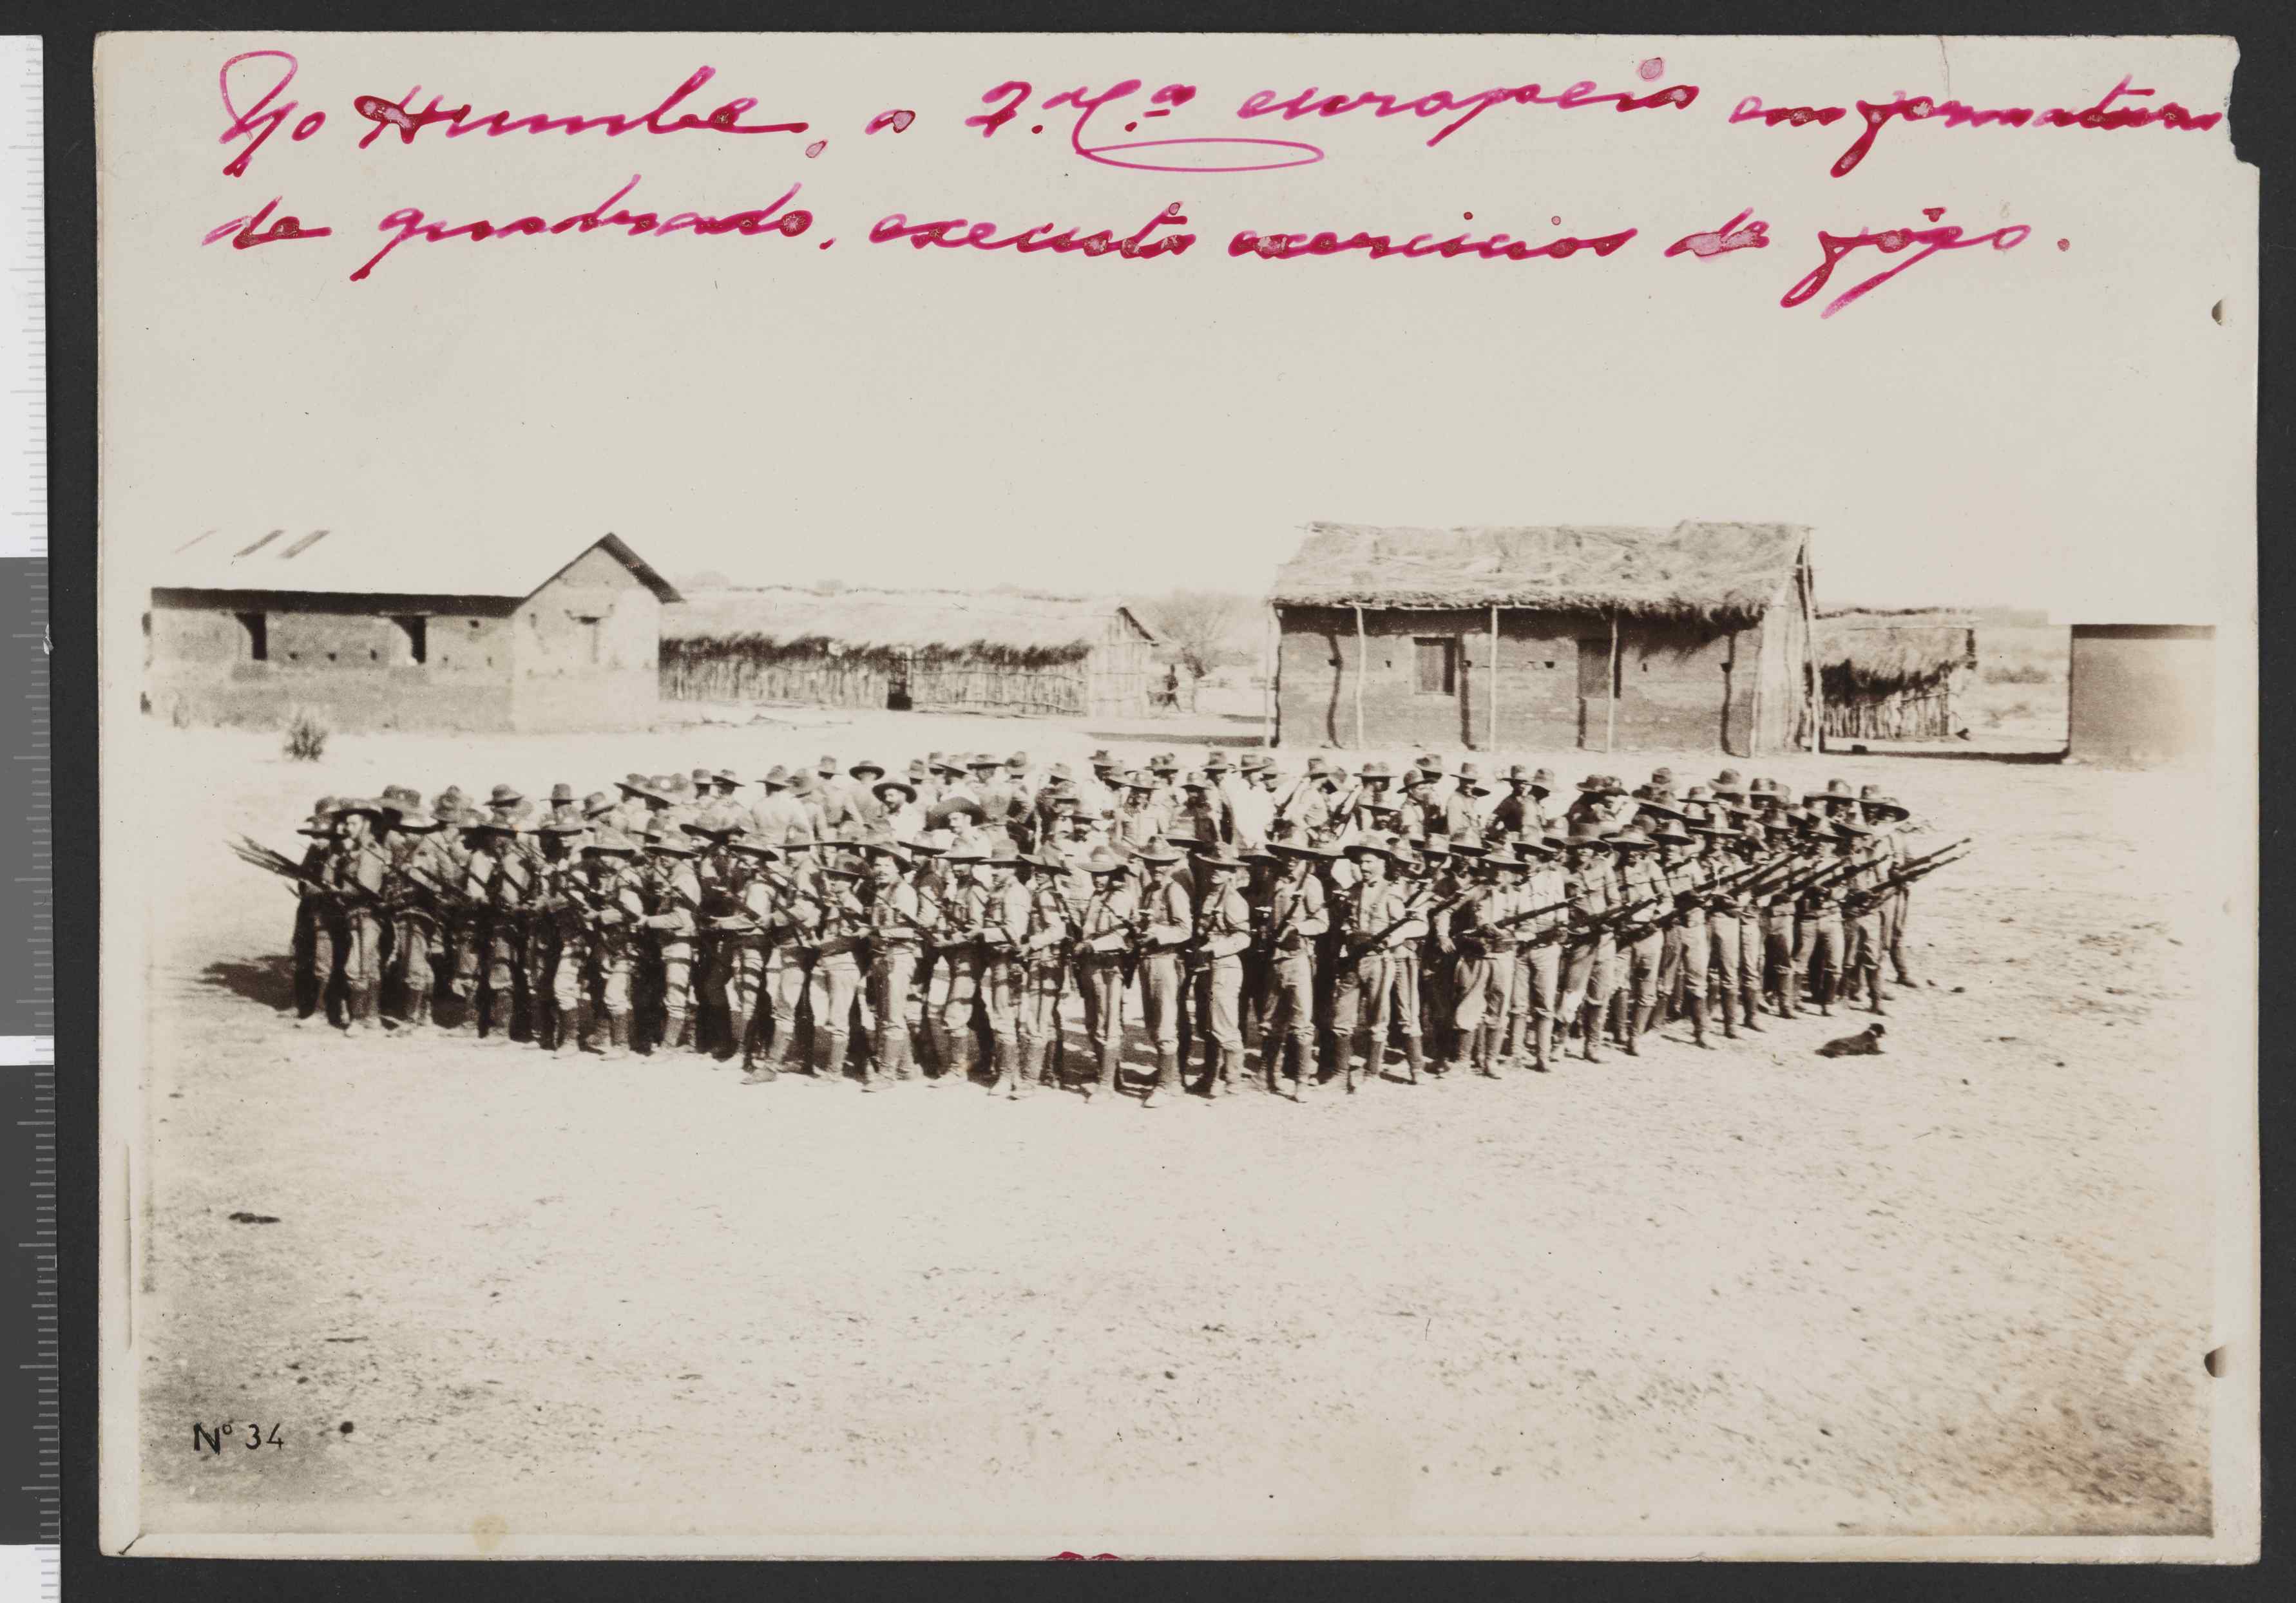 No Humbe, a 2.ª C.ª europeia em formatura
de quadrado, executa exercicios de fôgo.
Nº 34